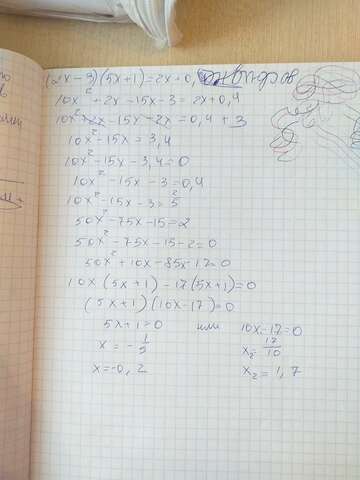 (2x-3)(5x+1)=2x+0,
10x²+2x-15x-3=2x+0,4
10x²+2x-15x-2x=0,4+3
10x²-15x=3,4
10x²-15x-3,4=0
10x²-15x-3=0,4
10x²-15x-3=2/5
50x²-75x-15=2
50x²-75x-15-2=0
50x²+10x-85x-17=0
10x(5x+1)-17(5x+1)=0
(5x+1)(10x-17)=0
5x+1=0 или 10x-17=0
x=-1/5 x₂=17/10
x=-0,2 x₂=1,7